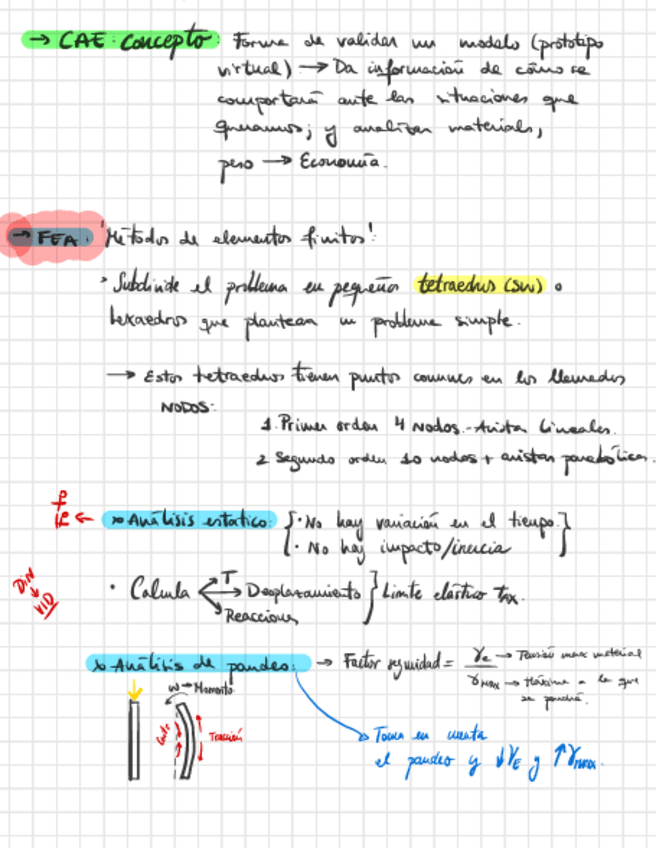 → CAE: Concepto: Forma de validar un modelo (prototipo
virtual) → Da información de cómo se
comportará ante las situaciones que
queramos; y analizar materials,
peso → Economía.
→ FEA: 'Métodos de elementos finitos'
Subdivide el problema en pequeños tetraedros (SW) o
hexaedros que plantean un problema simple.
→ Estos tetraedros tienen puntos comunes en los llamados
NODOS:
1. Primer orden 4 nodos.- Aristas lineales.
2 Segundo orden 10 nodos + aristas parabólicas.
← Análisis estático: { · No hay variación en el tiempo. }
· No hay impacto/inercia
DIN
↓
VID
· Calcula T
Desplazamiento } Límite elástico
Reacciones
Análisis de pandeo: → Factor seguridad = γe → Tensión max material
γMAX → Máxima a la que
se pondrá.
W → Momento
Tracción
Toma en cuenta
el pandeo y ↓γE y ↑γmax.